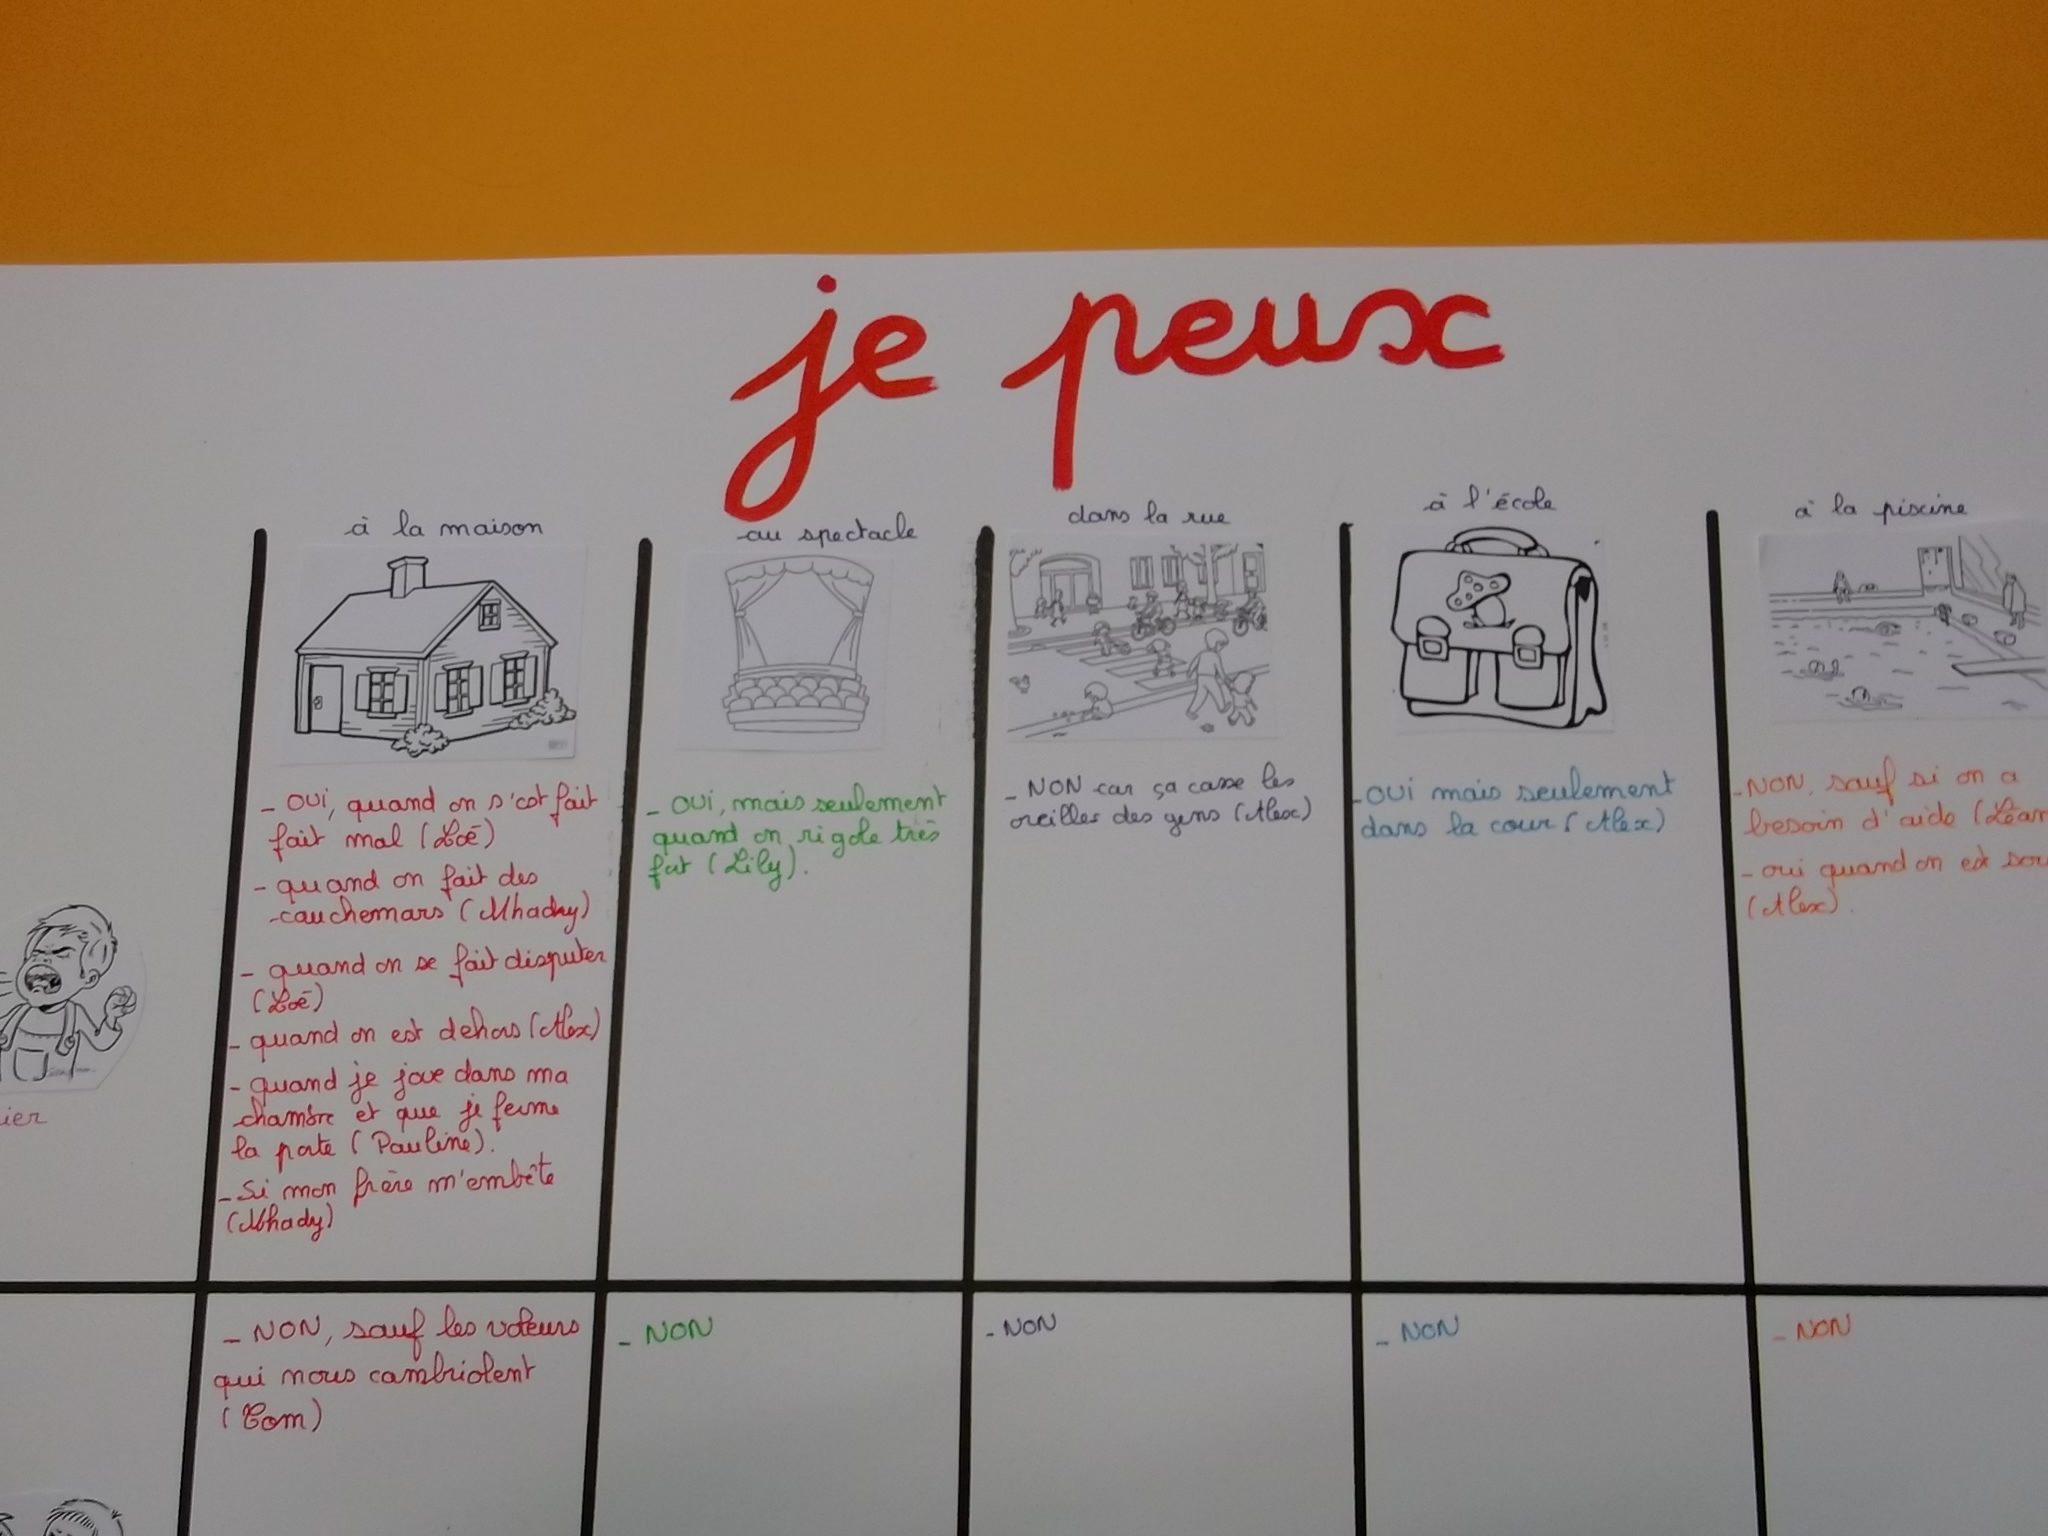 je peux
à la maison
au spectacle
dans la rue
à l'école
à la piscine
- OUI, quand on s'est fait
fait mal (Zoé)
- quand on fait des
cauchemars (Mhady)
- quand on se fait disputer
(Zoé)
- quand on est dehors (Alex)
- quand je joue dans ma
chambre et que je ferme
la porte (Pauline).
- Si mon frère m'embête
(Mhady)
- OUI, mais seulement
quand on rigole très
fort (Lily).
- NON car ça casse les
oreilles des gens (Alex)
- OUI mais seulement
dans la cour (Alex)
- NON, sauf si on a
besoin d'aide (Léan
- oui quand on est sou
(Alex).
ier
- NON, sauf les voleurs
qui nous cambriolent
(Tom)
- NON
- NON
- NON
- NON